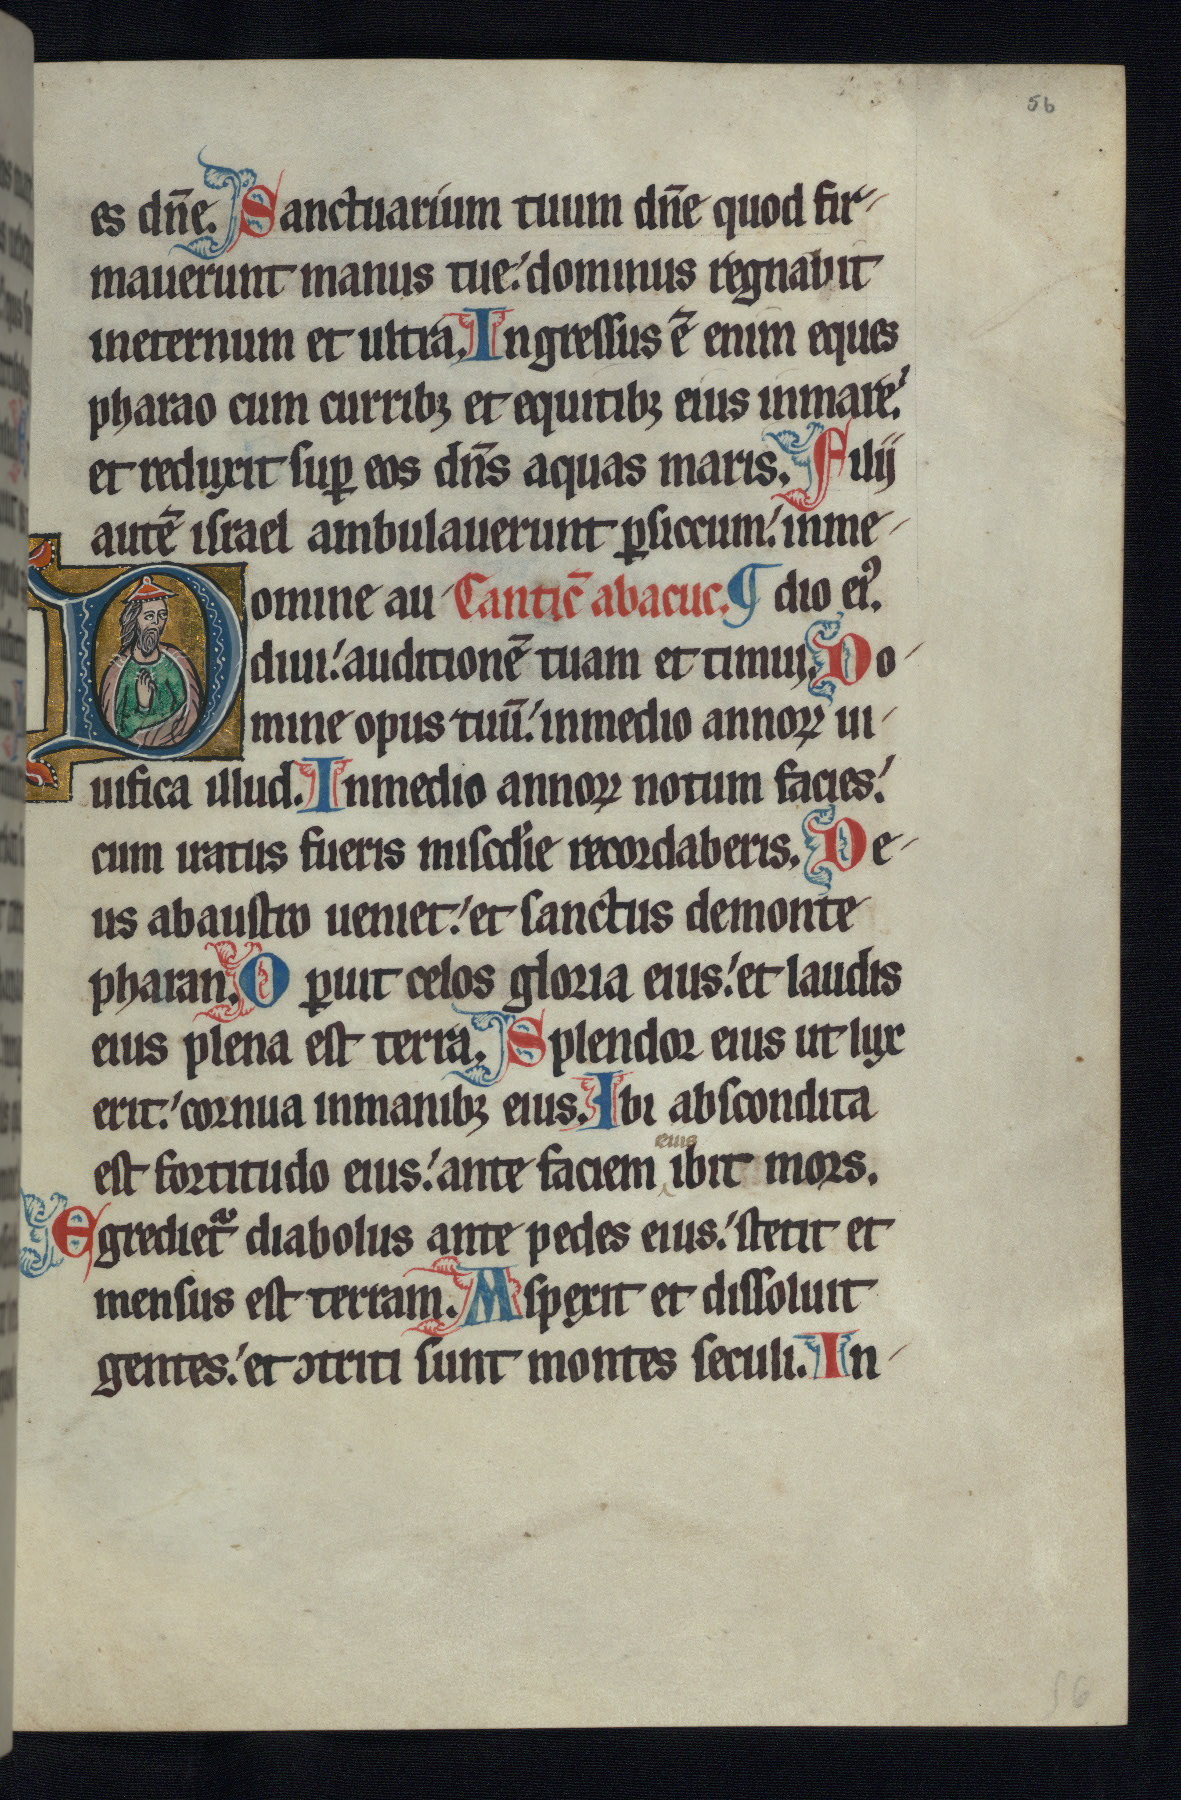 56
es dn̄e. Sanctuarium tuum dn̄e quod fir-
mauerunt manus tue: dominus regnabit
ineternum et ultra. Ingressus ē enim eques
pharao cum curribꝫ et equitibꝫ eius inmare:
et reduxit suꝑ eos dn̄s aquas maris. Filij
autē israel ambulauerunt ꝑsiccum: inme-
omine au Canticē abacuc. ¶ dio eiꝰ.
Ddiui: auditionē tuam et timui. Do-
mine opus tuū: inmedio annoꝝ ui-
uifica illud. Inmedio annoꝝ notum facies:
cum iratus fueris misc̄die recordaberis. De-
us abaustro ueniet: et sanctus demonte
pharan. Oꝑuit celos gloria eius: et laudis
eius plena est terra. Splendor eius ut lux
erit: cornua inmanibꝫ eius. Ibi abscondita
est fortitudo eius: ante faciem eius ibit mors.
Egredietᷣ diabolus ante pedes eius: stetit et
mensus est terram. Aspexit et dissoluit
gentes: et ꝯtriti sunt montes seculi. In-
56